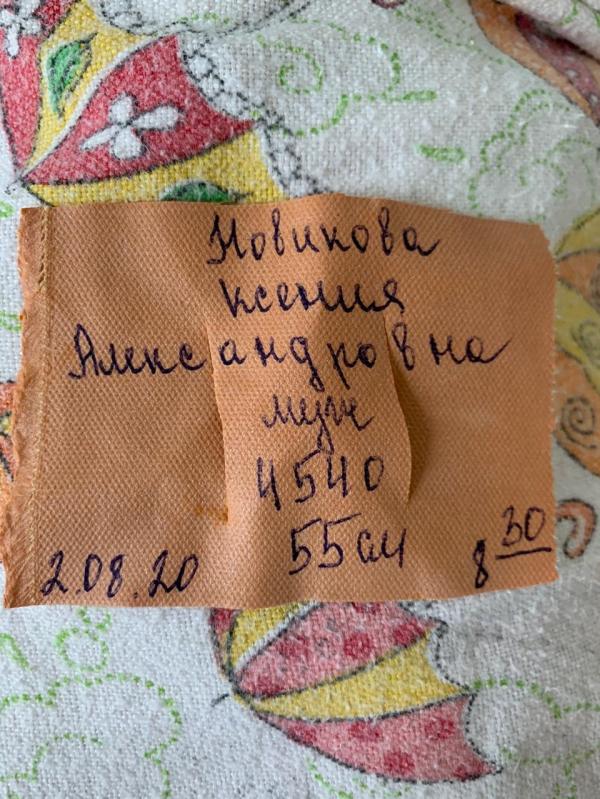 Новикова
Ксения
Александровна
муж
4540
55 см
2.08.20 8 30